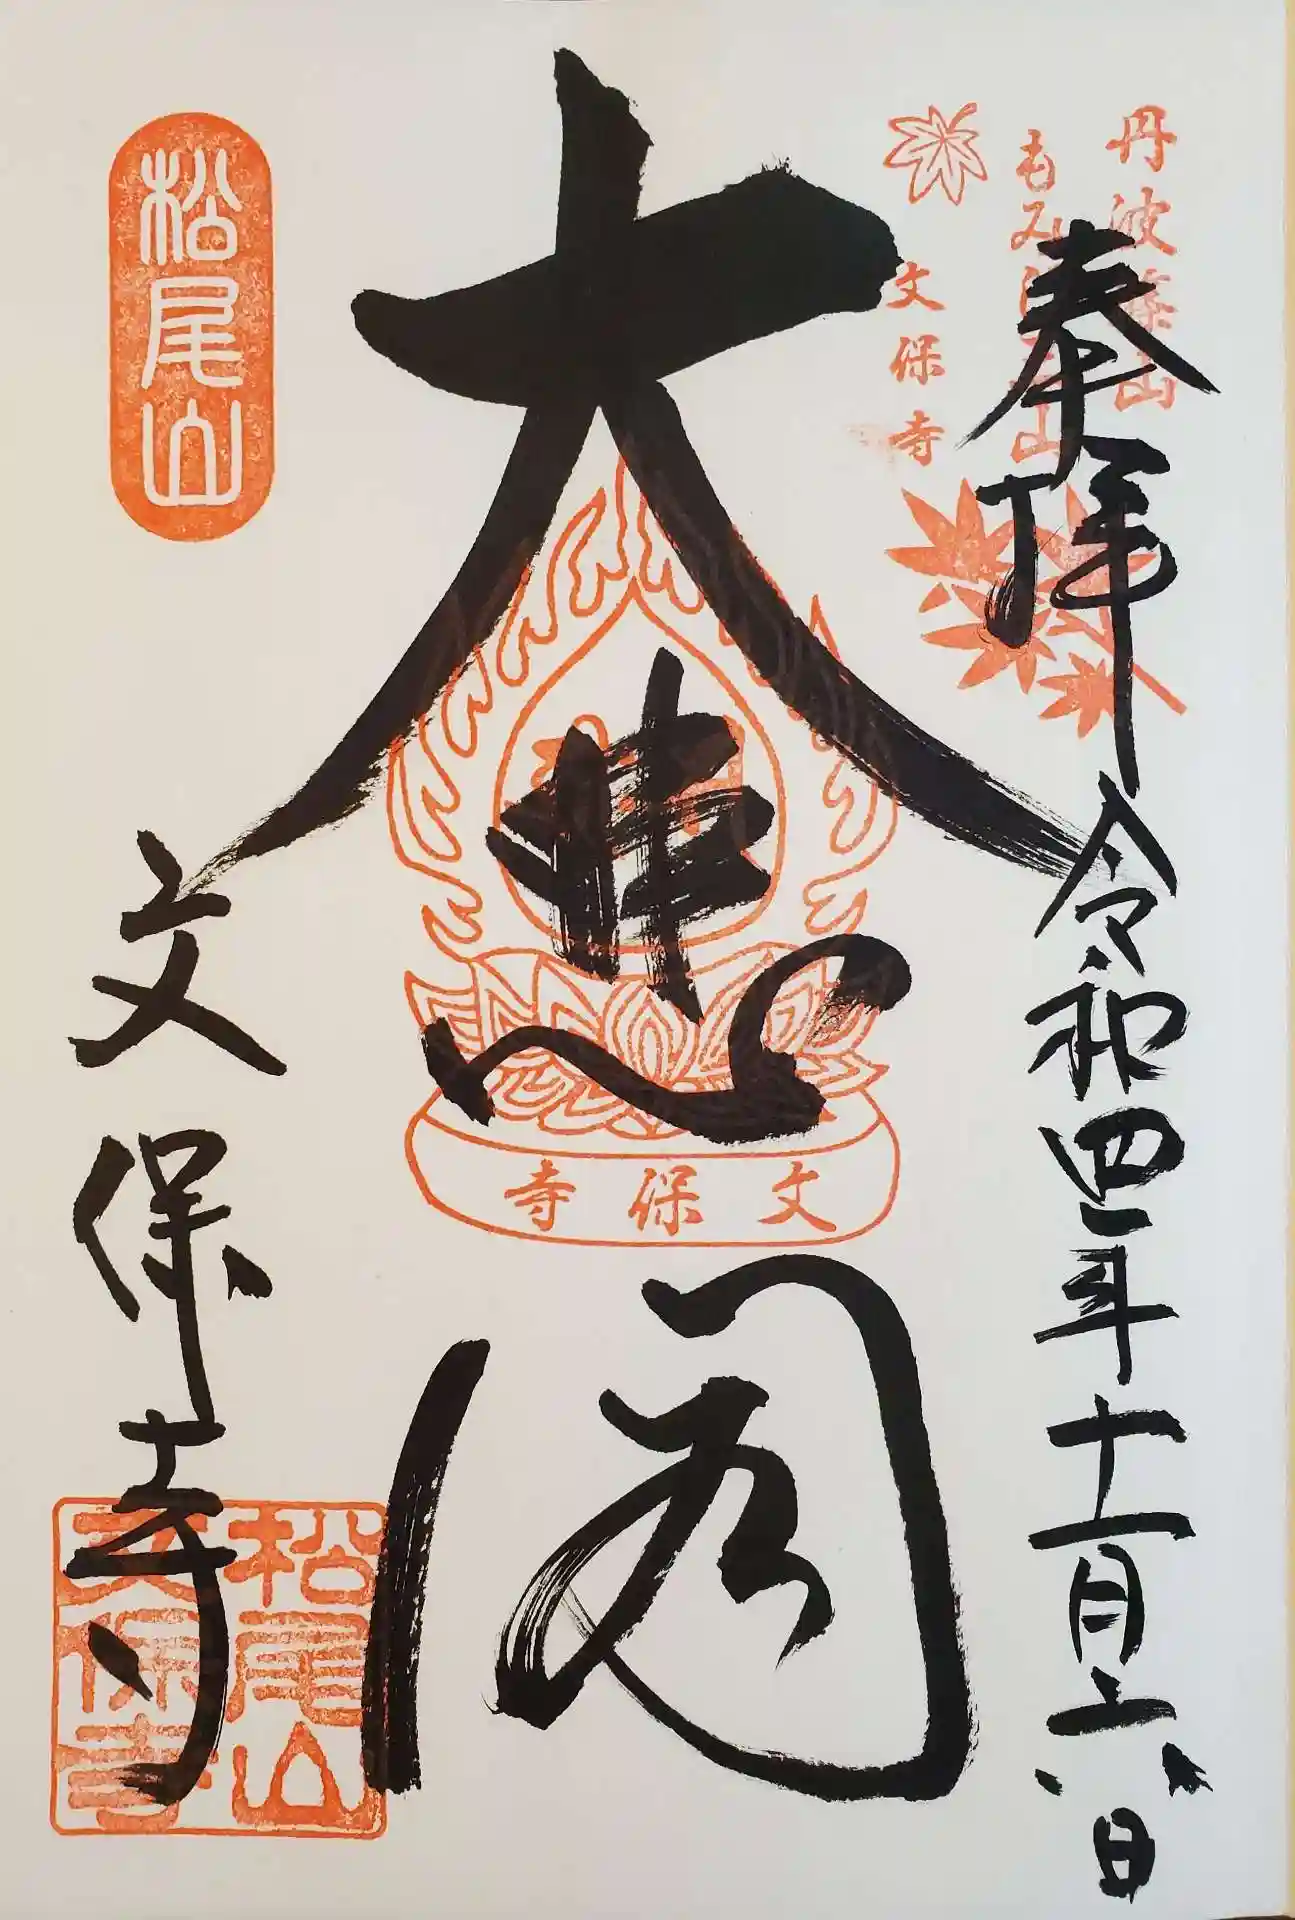 丹波篠山
もみじ三山
文保寺
奉拝 令和四年十一月六日
大悲閣
文保寺
松尾山
文保寺
松尾山
文保寺